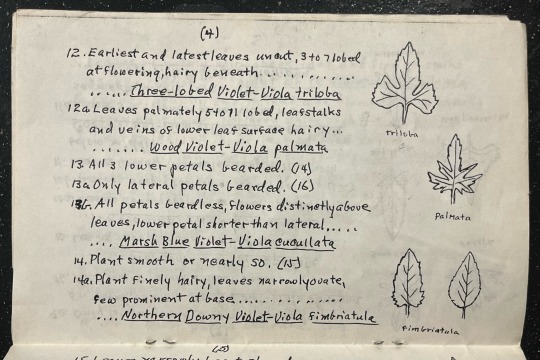 (4)
12. Earliest and latest leaves uncut, 3 to 7 lobed
at flowering, hairy beneath............
...... Three-lobed Violet-Viola triloba
12a. Leaves palmately 5 to 11 lobed, leafstalks
and veins of lower leaf surface hairy...
....... Wood Violet-Viola palmata
13. All 3 lower petals bearded. (14)
13a. Only lateral petals bearded. (16)
13b. All petals beardless, flowers distinctly above
leaves, lower petal shorter than lateral.....
.... Marsh Blue Violet-Viola cucullata
14. Plant smooth or nearly so. (15)
14a. Plant finely hairy, leaves narrowly ovate,
few prominent at base............
.... Northern Downy Violet-Viola fimbriatula
triloba
Palmata
Fimbriatula